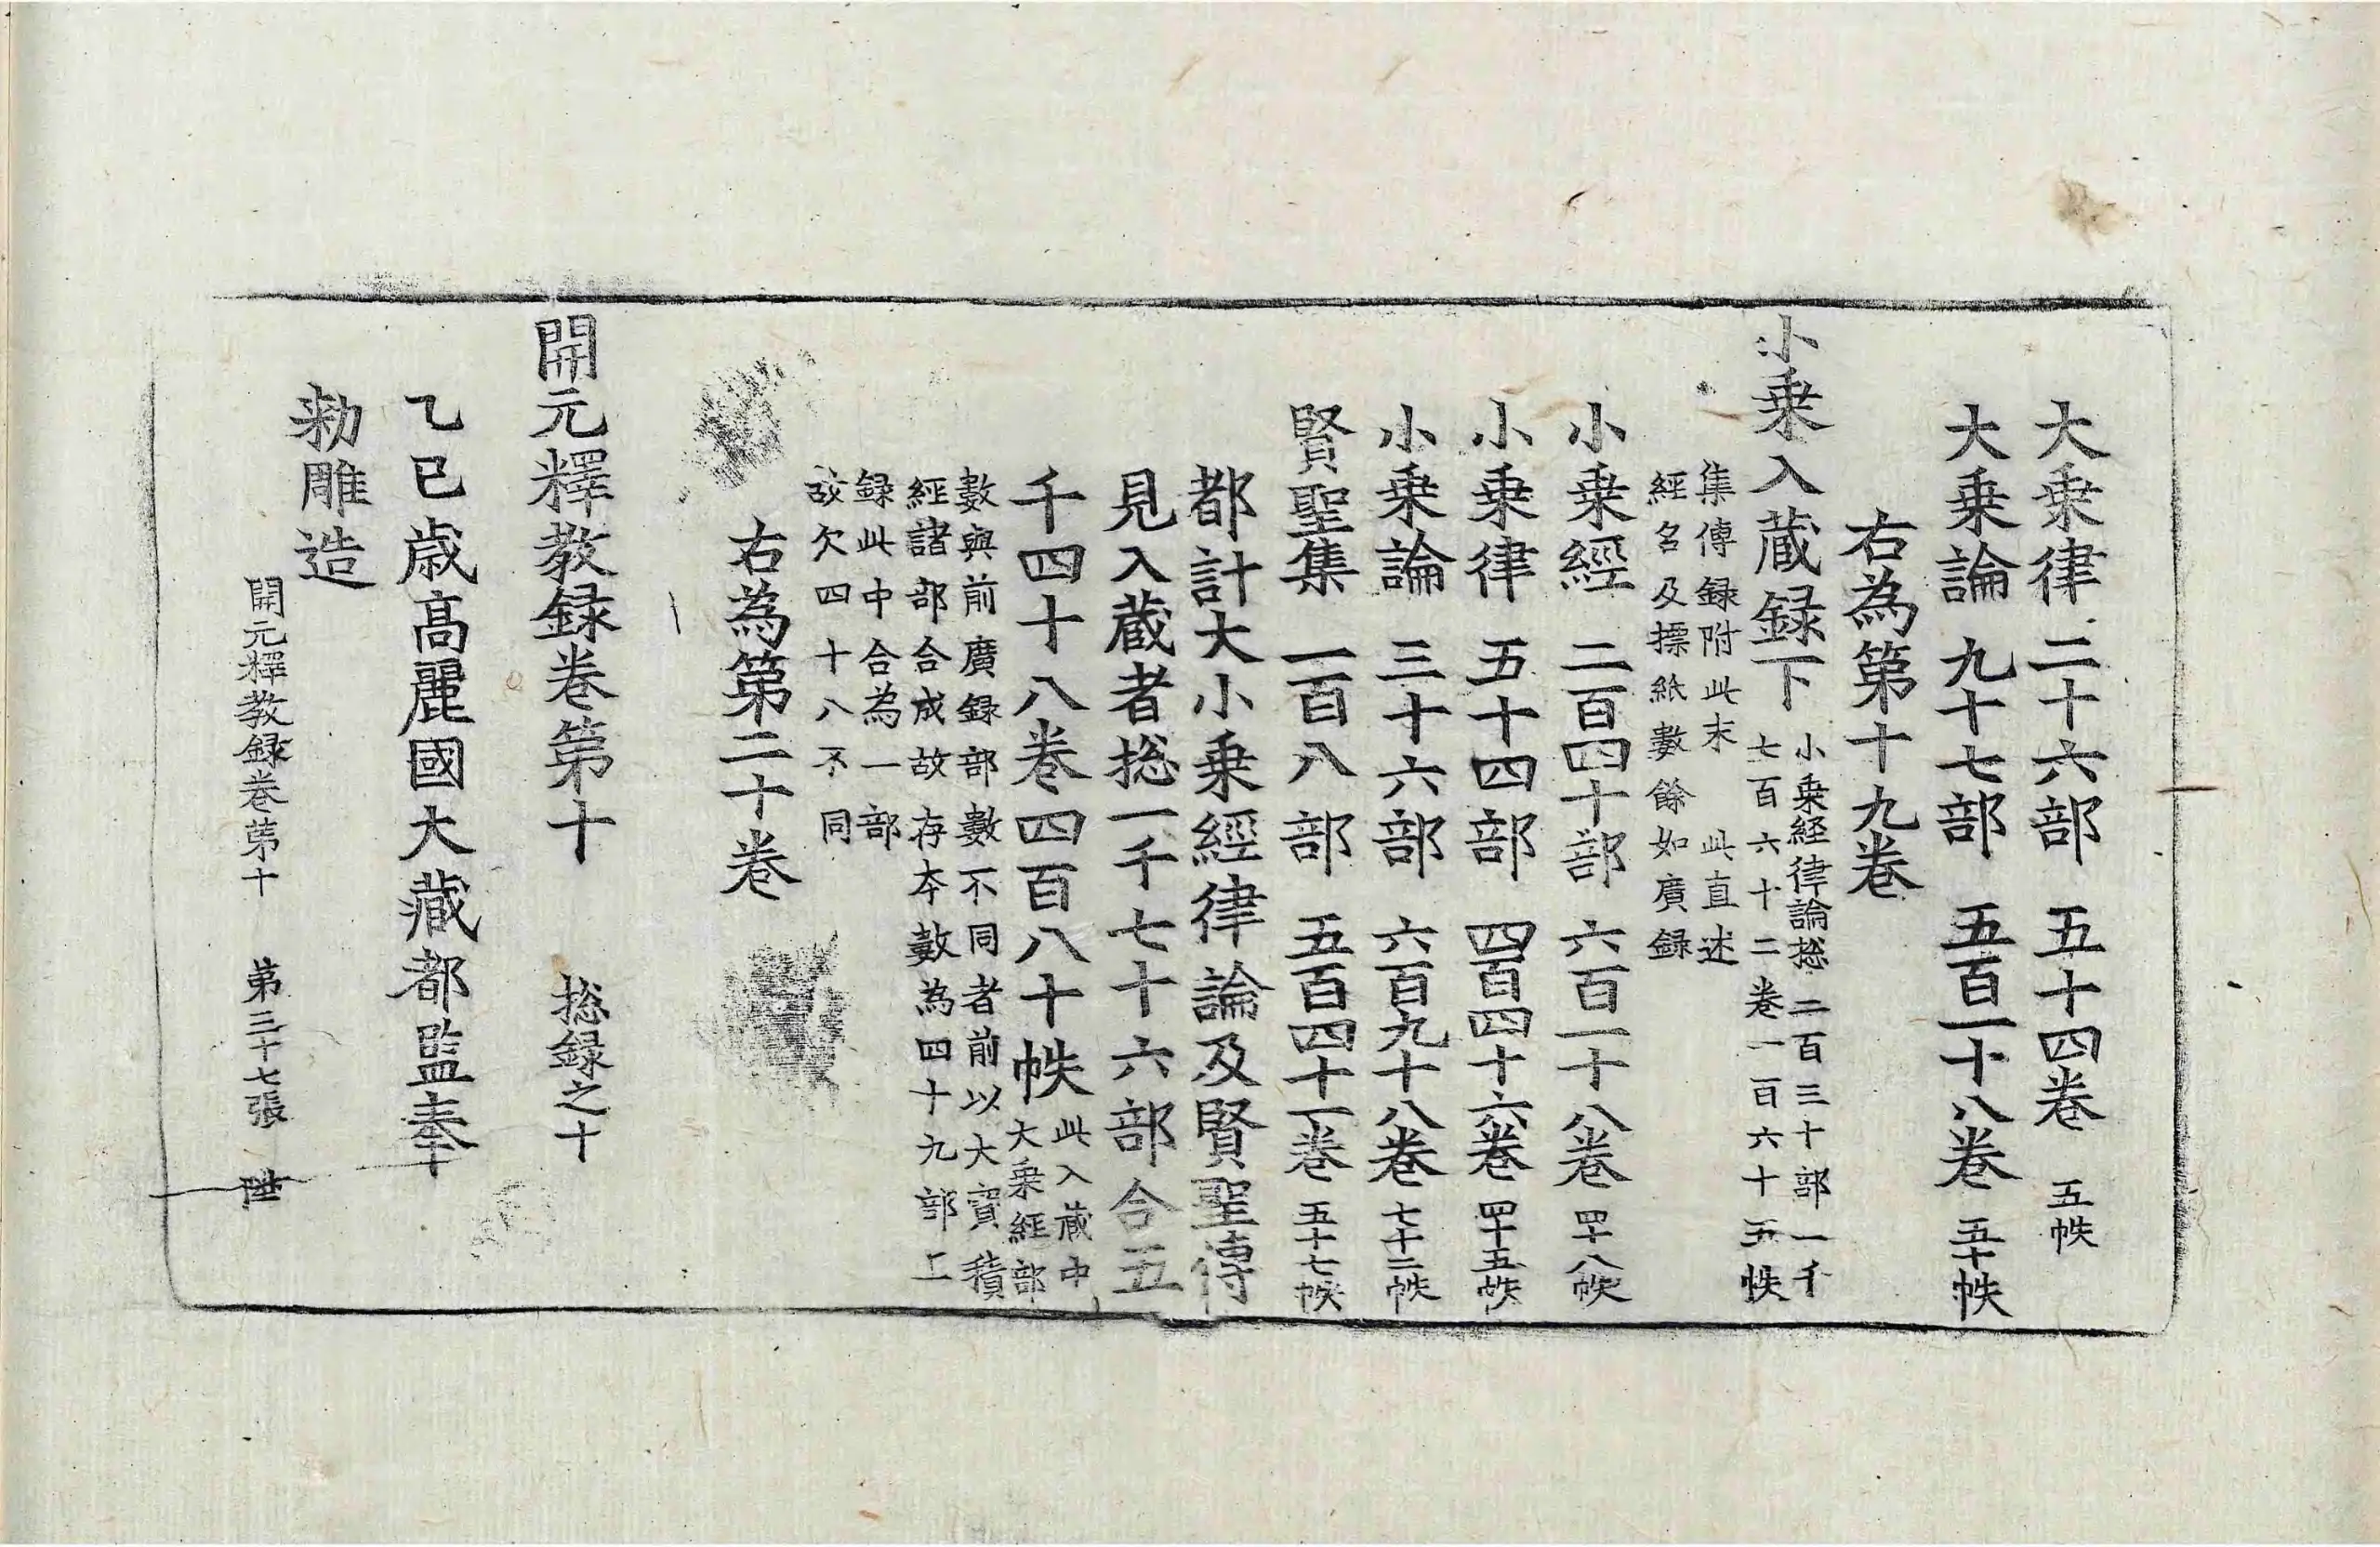 大乗律 二十六部 五十四卷 五帙
大乗論 九十七部 五百一十八卷 五十帙
右為第十九卷
小乗入蔵録下 小乗経律論揔二百三十部一千
七百六十二卷一百六十五帙
集傳録附此末 此直述
經名及摽紙數餘如廣録
小乗經 二百四十部 六百一十八卷 四十八帙
小乗律 五十四部 四百四十六卷 四十五帙
小乗論 三十六部 六百九十八卷 七十二帙
賢聖集 一百八部 五百四十一卷 五十七帙
都計大小乗經律論及賢聖傳
見入蔵者揔一千七十六部合五
千四十八卷四百八十帙 此入蔵中
大乗經部
數與前廣録部數不同者前以大寶積
經諸部合成故存本數為四十九部上
録此中合為一部
故欠四十八不同
右為第二十卷
開元釋教録卷第十 揔録之十
乙巳歳高麗國大藏都監奉
勑雕造
開元釋教録卷第十 第三十七張